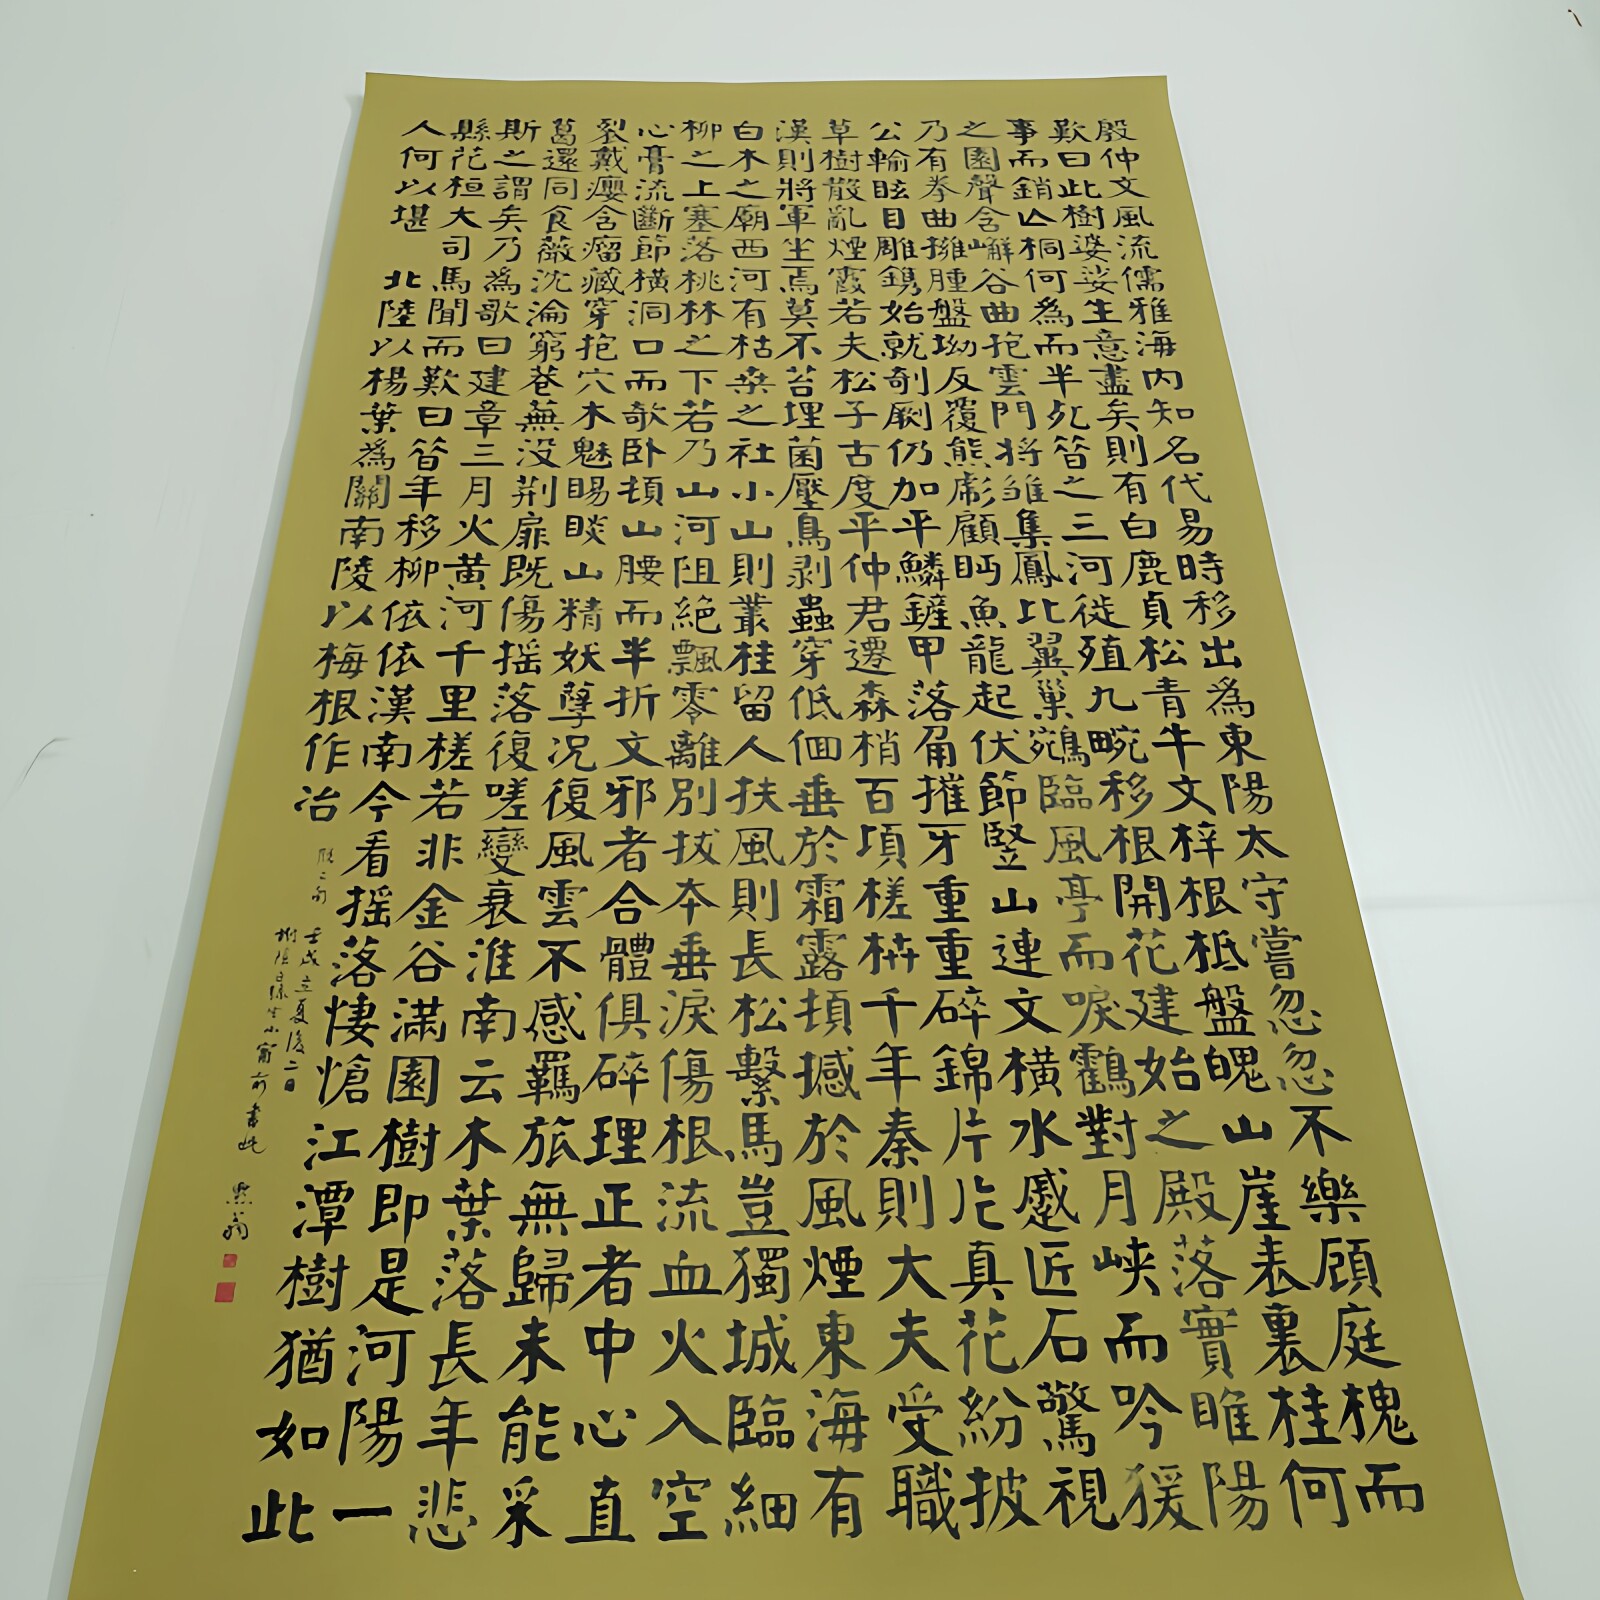 殷仲文風流儒雅海內知名代易時移出為東陽太守嘗忽忽不樂顧庭槐而
歎曰此樹婆娑生意盡矣則有白鹿貞松青牛文梓根柢盤魄山崖表裏桂何
事而銷亡桐何為而半死昝之三河徙殖九畹移根開花建始之殿落實睢陽
之園聲含嶰谷曲抱雲門将雛集鳳比翼巢鵷臨風亭而唳鶴對月峡而吟猨
乃有拳曲擁腫盤坳反覆熊彪顧眄魚龍起伏節豎山連文橫水蹙匠石驚視
公輸眩目雕鐫始就剞劂仍加平鱗鏟甲落角摧牙重重碎錦片片真花紛披
草樹散亂煙霞若夫松子古度平仲君遷森梢百頃槎枿千年秦則大夫受職
漢則將軍坐焉莫不苔埋菌壓鳥剥蟲穿低佪垂於霜露頓撼於風煙東海有
白木之廟西河有枯桑之社小山則叢桂留人扶風則長松繫馬豈獨城臨細
柳之上塞落桃林之下若乃山河阻絶飄零離別拔本垂淚傷根流血火入空
心膏流斷節橫洞口而欹卧頓山腰而半折文邪者合體俱碎理正者中心直
裂戴癭含瘤藏穿抱穴木魅睗睒山精妖孽況復風雲不感羈旅無歸未能采
葛還同食薇沈淪窮巷蕪没荆扉既傷摇落復嗟變衰淮南云木葉落長年悲
斯之謂矣乃為歌曰建章三月火黃河千里槎若非金谷滿園樹即是河陽一
縣花桓大司馬聞而歎曰昝年移柳依依漢南今看摇落悽愴江潭樹猶如此
人何以堪 北陸以楊葉為關南陵以梅根作冶
脱二句
壬戌立夏後二日
小窗前書此 默翁